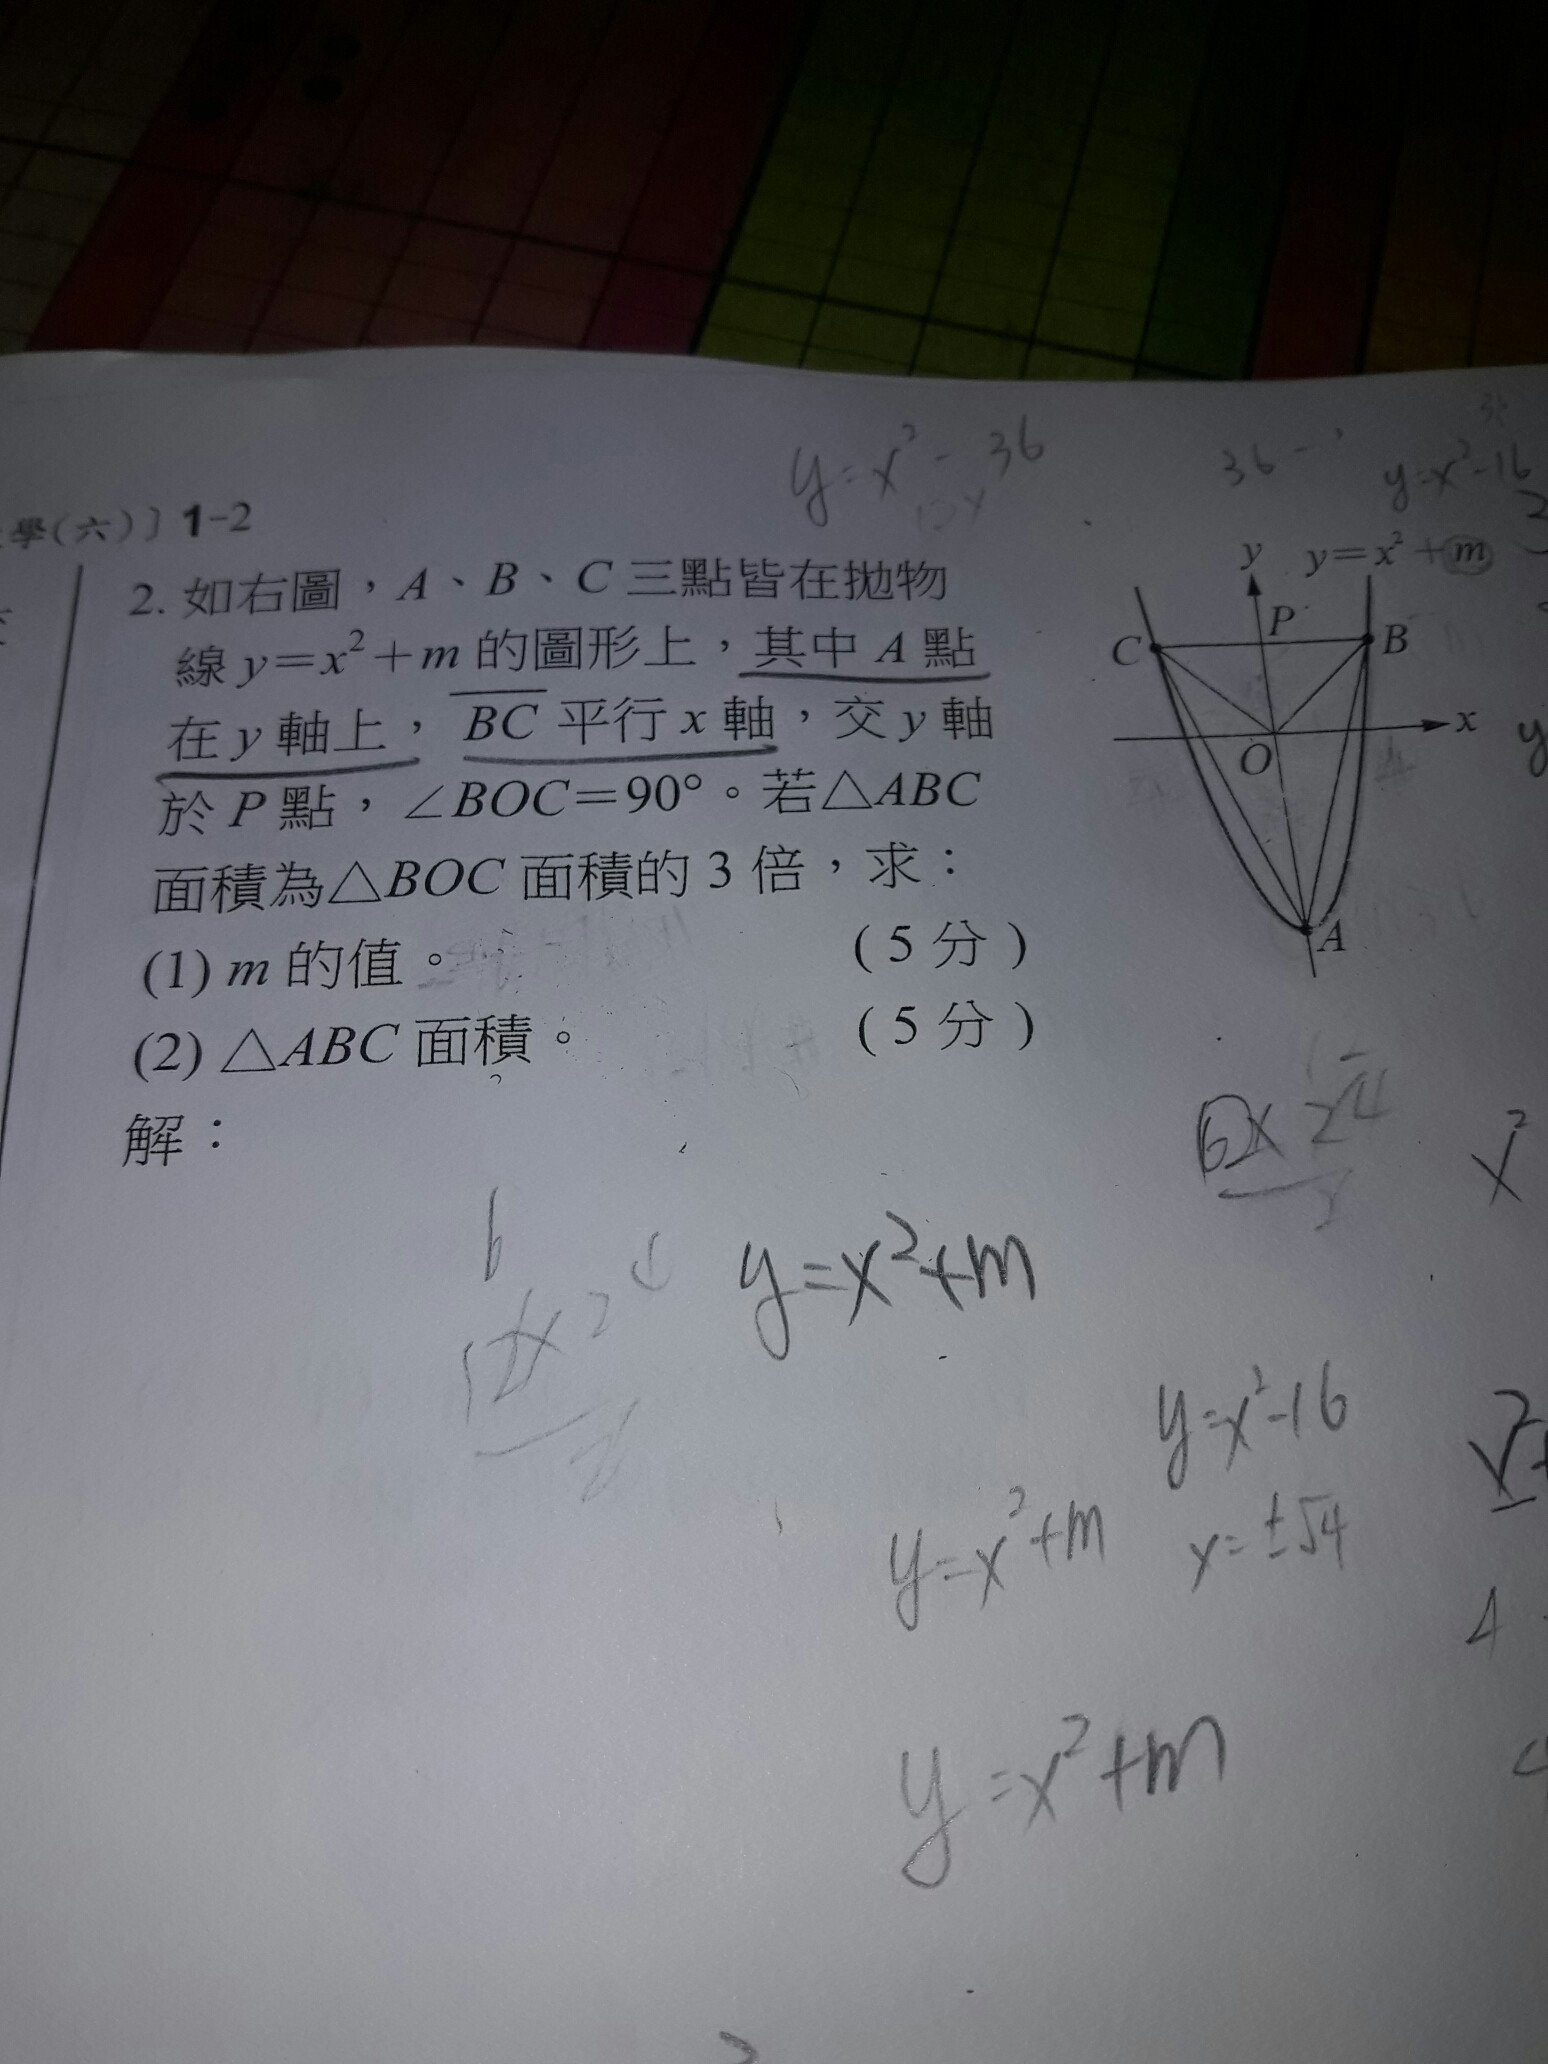 學(六)〕1-2
y=x²-36
36-
y=x²-16
2. 如右圖,A、B、C 三點皆在拋物
線 y=x²+m 的圖形上,其中 A 點
在 y 軸上,BC 平行 x 軸,交 y 軸
於 P 點,∠BOC=90°。若△ABC
面積為△BOC 面積的 3 倍,求:
(1) m 的值。 (5 分)
(2) △ABC 面積。 (5 分)
解:
y y=x²+m
C P B
O x
A
y=x²+m
y=x²-16
y=x²+m
x=±√4
4
y=x²+m